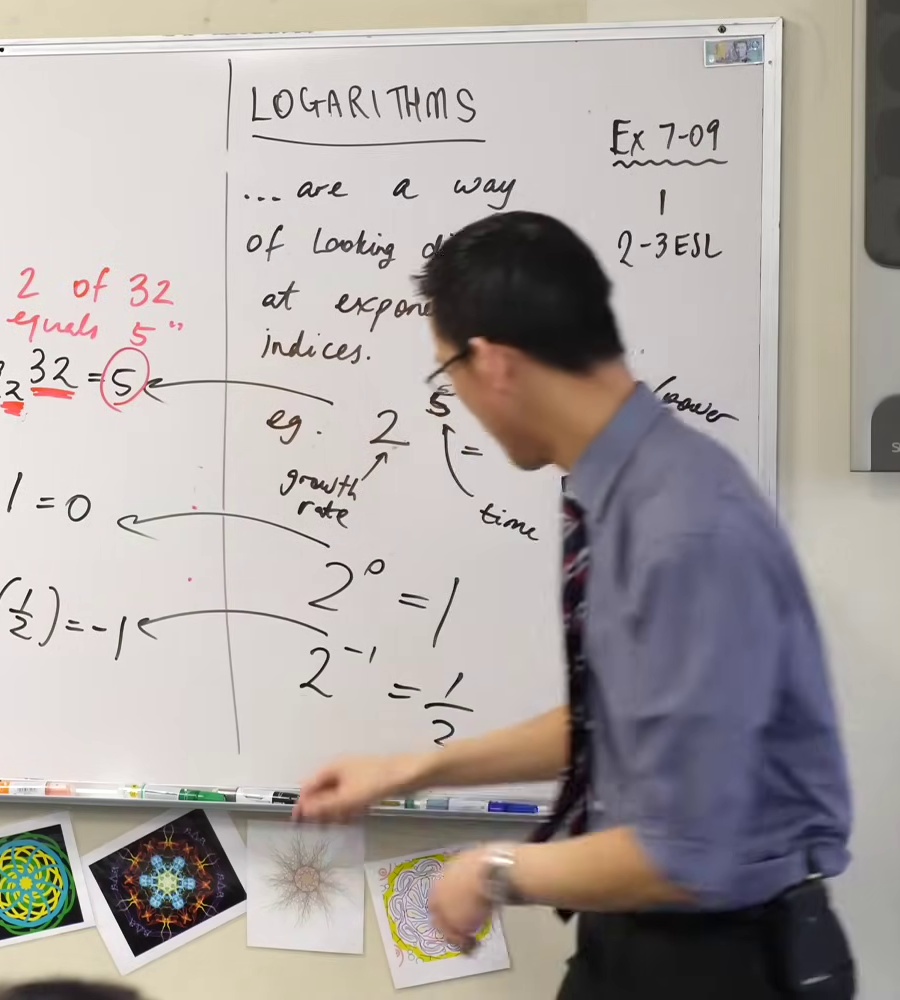 2 of 32
equals 5"
2 32 = 5
1 = 0
(1/2) = -1
LOGARITHMS
... are a way
of looking
at
indices.
eg. 2^5 =
growth
rate
time
power
2^0 = 1
2^-1 = 1/2
Ex 7-09
1
2-3 ESL